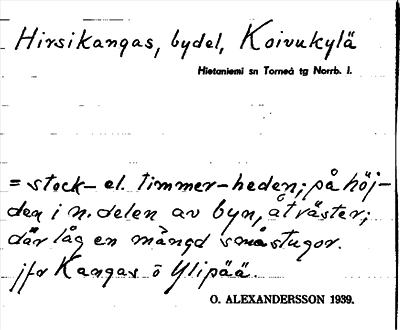 Hirsikangas, bydel, Koivukylä
Hietaniemi sn Torneå tg Norrb. l.
= stock- el. timmer-heden; på höj-
den i n. delen av byn, åt väster;
där låg en mängd småstugor.
jfr Kangas ö Ylipää.
O. ALEXANDERSSON 1939.